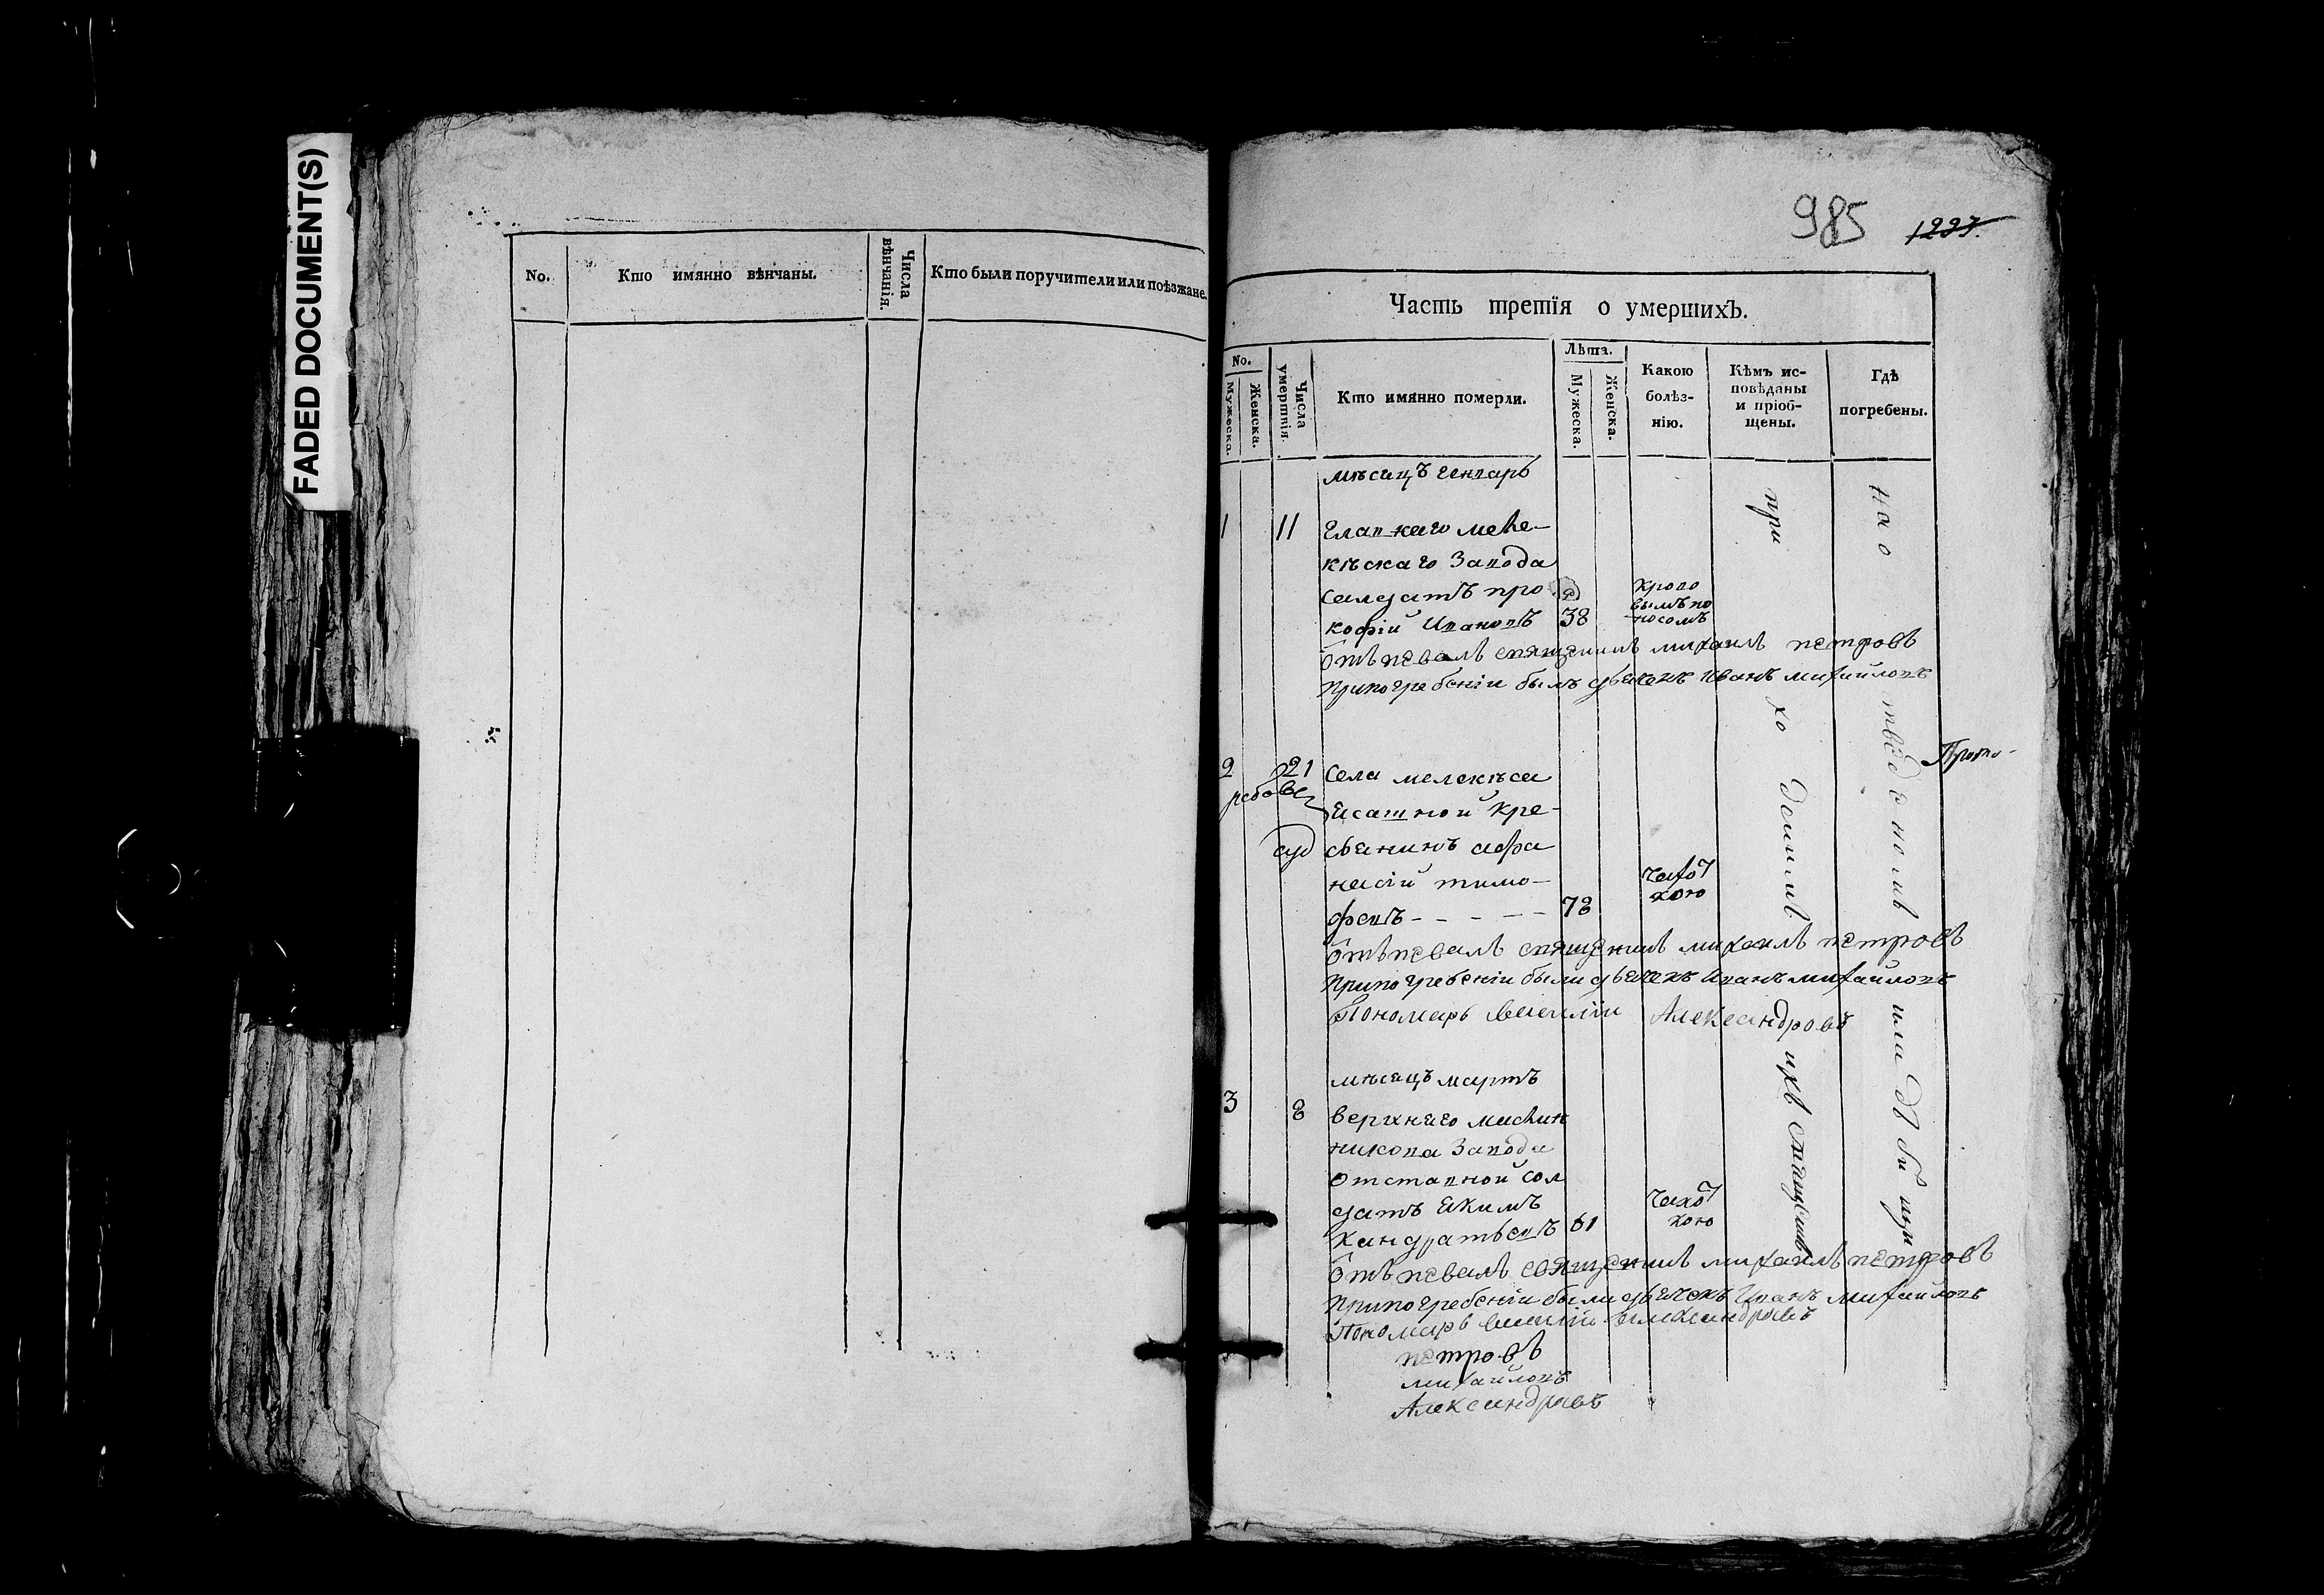 FADED DOCUMENT(S)
No.
Кто имянно вѣнчаны.
Числа вѣнчанія.
Кто были поручители или поѣзжане.
985 1227.
Часть третїя о умершихъ.
No.
Мужеска.
Женска.
Числа умертвія.
Кто имянно померли.
Лѣта.
Мужеска.
Женска.
Какою болѣз-
нію.
Кѣмъ ис-
повѣданы
и пріоб-
щены.
Гдѣ
погребены.
мѣсяцъ генварь
1 11 главнаго меле-
кѣскаго завода
салдатъ про
кофій Ивановъ 38 крово
вымъ по
носомъ
Отъпевалъ священникъ михаилъ петровъ
При погребеніи былъ дьячекъ Иванъ михайловъ
2 21 села мелекѣса
ясашной кре-
стьянинъ афа
насій тимо-
феевъ - - - - - 78 чахот
кою
Отъпевалъ священникъ михаилъ петровъ
При погребеніи были дьячекъ Иванъ михайловъ
Пономарь василій Александровъ
мѣсяцъ мартъ
3 8 верхняго
никова завода
отставной сол
датъ якимъ
кандратьевъ 61 чахот
кою
Отъпевалъ священникъ михаилъ петровъ
При погребеніи были дьячекъ Иванъ михайловъ
Пономарь василій александровъ
петровъ
михайловъ
Александровъ
при хо дскимъ ихъ священникомъ
на о твѣденномъ кладбищи
Прото-